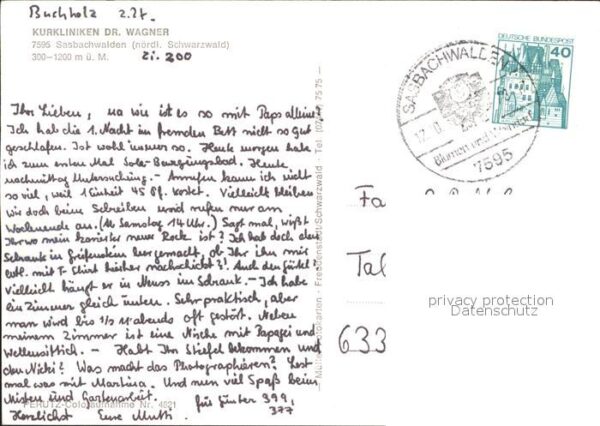 Buchholz 2.27.
KURKLINIKEN DR. WAGNER
7595 Sasbachwalden (nördl. Schwarzwald)
300-1200 m ü. M.
Zi. 200
Ihr Lieben, na wie ist es so mit Paps alleine?
Ich hab die 1. Nacht im fremden Bett nicht so gut
geschlafen. Ist wohl immer so. Heute morgen habe
ich zum ersten Mal Sole-Bewegungsbad. Heute
nachmittag Untersuchung. - Anrufen kann ich nicht
so viel, weil 1 Einheit 45 Pf. kostet. Vielleicht bleiben
wir doch beim Schreiben und rufen nur am
Wochenende an. (Samstag 14 Uhr.) Sagt mal, wißt
Ihr wo mein karierter neuer Rock ist? Ich hab doch den
Schrank in Greifenstein leer gemacht, ob Ihr ihn mir
evtl. mit T-Shirt hierher nachschickt?! Auch den Gürtel?
Vielleicht hängt er in Neuss im Schrank. - Ich habe
ein Zimmer gleich unten. Sehr praktisch, aber
man wird bis 1/2 11 abends oft gestört. Neben
meinem Zimmer ist eine Nische mit Papagei und
Wellensittich. - Habt Ihr Stiefel bekommen und
den Nicki? Was macht das Photographieren? Lest
mal was mit Martina. Und nun viel Spaß beim
Misten und Gartenarbeit.
für Günter 399,
377
Herzlichst Eure Mutti.
PERUTZ-Coloraufnahme Nr. 4821
Freudenstadt/Schwarzwald - Tel. 75 75
DEUTSCHE BUNDESPOST
40
SASBACHWALDEN
Blumen und
7595
Fa
Tal
633
privacy protection
Datenschutz